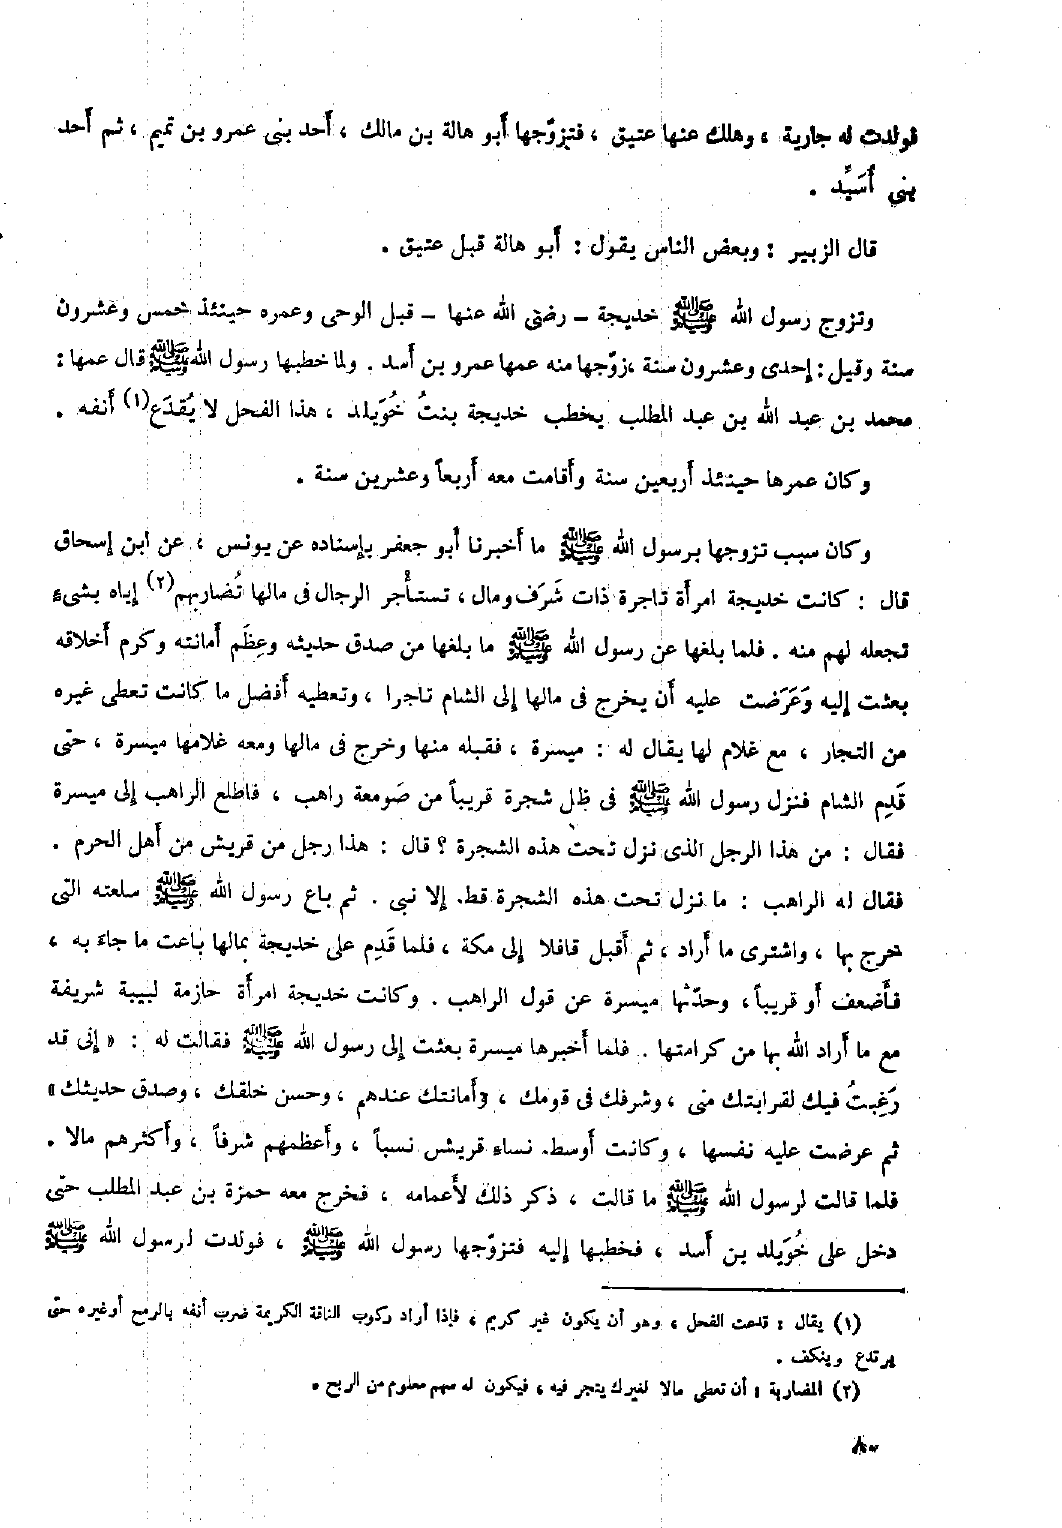 فولدت له جارية ، وهلك عنها عتيق ، فتزوّجها أبو هالة بن مالك ، أحد بنى عمرو بن تميم ، ثم أحد
بنى أُسَيِّد .
قال الزبير : وبعض الناس يقول : أبو هالة قبل عتيق .
وتزوج رسول الله ﷺ خديجة – رضى الله عنها – قبل الوحى وعمره حينئذ خمس وعشرون
سنة وقيل : إحدى وعشرون سنة ،زوّجها منه عمها عمرو بن أسد . ولما خطبها رسول الله ﷺ قال عمها :
محمد بن عبد الله بن عبد المطلب يخطب خديجة بنتُ خُوَيلد ، هذا الفحل لا يُقدَع(١) أنفه .
وكان عمرها حينئذ أربعين سنة وأقامت معه أربعاً وعشرين سنة .
وكان سبب تزوجها برسول الله ﷺ ما أخبرنا أبو جعفر بإسناده عن يونس ، عن ابن إسحاق
قال : كانت خديجة امرأة تاجرة ذات شَرَف ومال ، تستأْجر الرجال فى مالها تُضاربهم(٢) إياه بشىء
تجعله لهم منه . فلما بلغها عن رسول الله ﷺ ما بلغها من صدق حديثه وعِظَم أمانته وكرم أخلاقه
بعثت إليه وَعَرَضت عليه أن يخرج فى مالها إلى الشام تاجرا ، وتعطيه أفضل ما كانت تعطى غيره
من التجار ، مع غلام لها يقال له : ميسرة ، فقبله منها وخرج فى مالها ومعه غلامها ميسرة ، حتى
قَدِم الشام فنزل رسول الله ﷺ فى ظل شجرة قريباً من صَومعة راهب ، فاطلع الراهب إلى ميسرة
فقال : من هذا الرجل الذى نزل تحت هذه الشجرة ؟ قال : هذا رجل من قريش من أهل الحرم .
فقال له الراهب : ما نزل تحت هذه الشجرة قط. إلا نبى . ثم باع رسول الله ﷺ سلعته التى
خرج بها ، واشترى ما أراد ، ثم أقبل قافلا إلى مكة ، فلما قَدِم على خديجة بمالها باعت ما جاءَ به ،
فأضعف أو قريباً ، وحدّثها ميسرة عن قول الراهب . وكانت خديجة امرأة حازمة لبيبة شريفة
مع ما أراد الله بها من كرامتها . فلما أخبرها ميسرة بعثت إلى رسول الله ﷺ فقالت له : « إنى قد
رَغِبتُ فيك لقرابتك منى ، وشرفك فى قومك ، وأمانتك عندهم ، وحسن خلقك ، وصدق حديثك »
ثم عرضت عليه نفسها ، وكانت أوسط. نساء قريش نسباً ، وأعظمهم شرفاً ، وأكثرهم مالا .
فلما قالت لرسول الله ﷺ ما قالت ، ذكر ذلك لأعمامه ، فخرج معه حمزة بن عبد المطلب حتى
دخل على خُوَيلد بن أسد ، فخطبها إليه فتزوّجها رسول الله ﷺ ، فولدت لرسول الله ﷺ
(١) يقال : قدعت الفحل ، وهو أن يكون غير كريم ، فإذا أراد ركوب الناقة الكريمة ضرب أنفه بالرمح أوغيره حتى
يرتدع وينكف .
(٢) المضاربة : أن تعطى مالا لغيرك يتجر فيه ، فيكون له سهم معلوم من الربح .